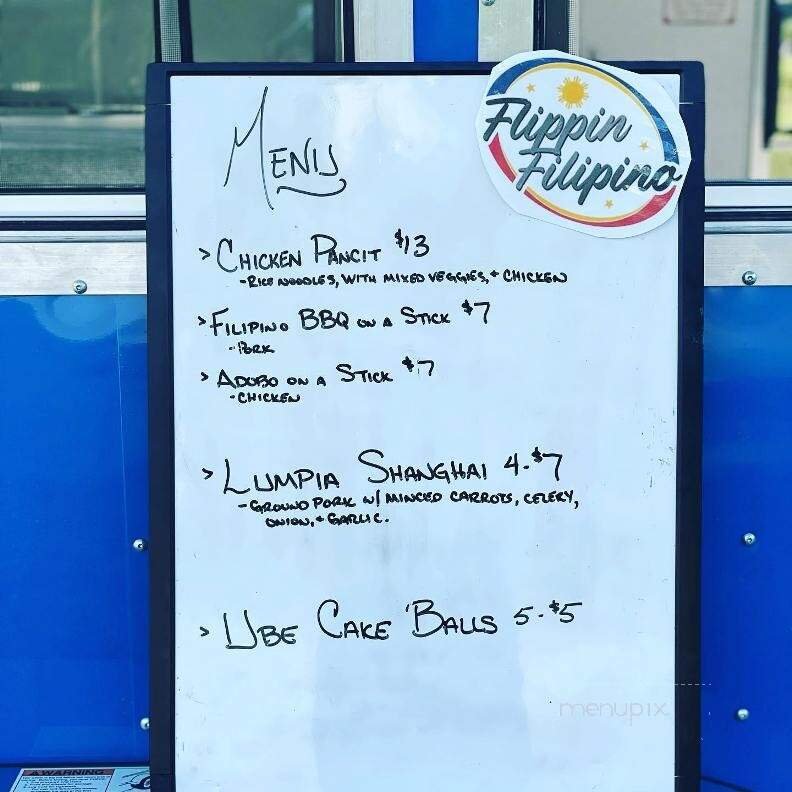 Flippin
Filipino
MENU
> CHICKEN PANCIT $13
- RICE NOODLES, WITH MIXED VEGGIES, + CHICKEN
> FILIPINO BBQ ON A STICK $7
- PORK
> ADOBO ON A STICK $7
- CHICKEN
> LUMPIA SHANGHAI 4-$7
- GROUND PORK W/ MINCED CARROTS, CELERY,
ONION, + GARLIC.
> UBE CAKE BALLS 5-$5
menupix
WARNING